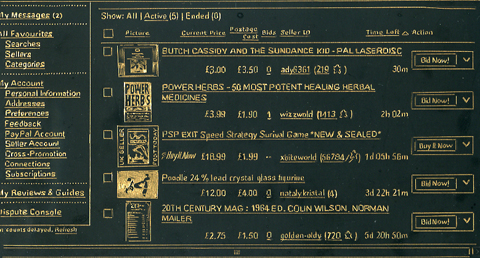 My Messages (2)
All Favourites
Searches
Sellers
Categories
My Account
Personal Information
Addresses
Preferences
Feedback
PayPal Account
Seller Account
Cross-Promotion
Connections
Subscriptions
My Reviews & Guides
Dispute Console
counts delayed, Refresh
Show: All | Active (5) | Ended (0)
Picture Current Price Postage Cost Bids Seller ID Time Left Action
BUTCH CASSIDY AND THE SUNDANCE KID - PAL LASERDISC
£3.00 £3.50 0 ady6361 (219) 30m Bid Now!
POWER HERBS
POWER HERBS - 50 MOST POTENT HEALING HERBAL
MEDICINES
£3.99 £1.90 wizzwold (1413) 2h 02m Bid Now!
UK SELLER
PSP EXIT Speed Strategy Surival Game *NEW & SEALED*
Buy It Now £18.99 £1.99 -- xbiteworld (56784) 1d 05h 56m Buy It Now
Poodle 24 % lead crystal glass figurine
£12.00 £4.00 0 natalykristal (4) 3d 22h 21m Bid Now!
20TH CENTURY MAG : 1964 ED. COLIN WILSON, NORMAN
MAILER
£2.75 £1.50 0 golden-oldy (720) 5d 20h 50m Bid Now!